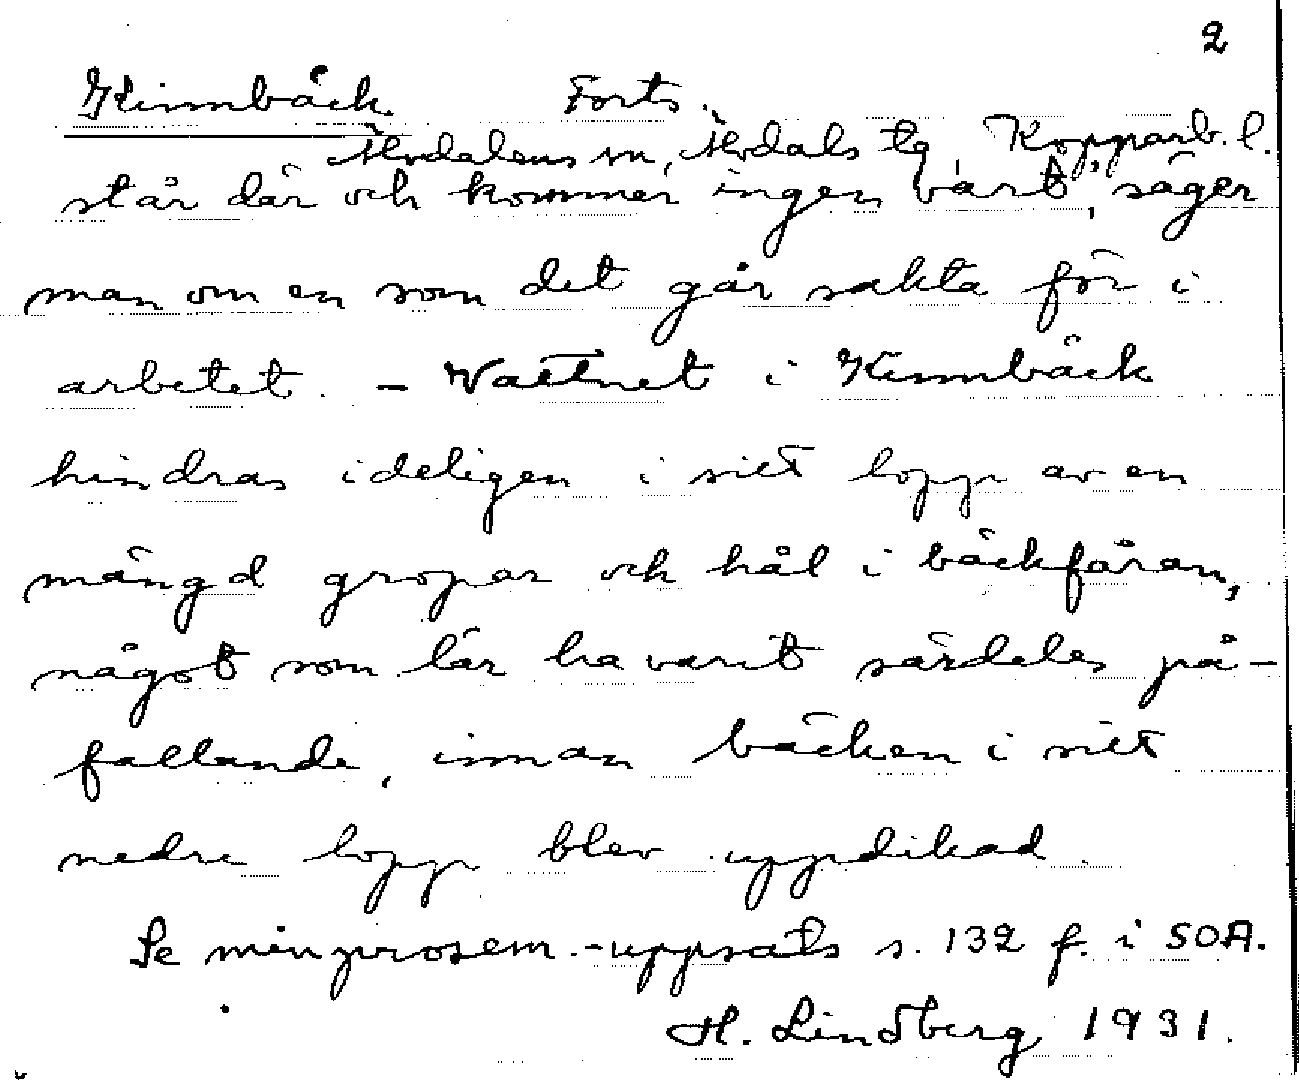 2
Kinnbäck Forts.
Älvdalens sn, Älvdals tg, Kopparb. l.
står där och kommer ingen vart", säger
man om en som det går sakta för i
arbetet. – Vattnet i Kinnbäck
hindras ideligen i sitt lopp av en
mängd gropar och hål i bäckfåran,
något som lär ha varit särdeles på-
fallande, innan bäcken i sitt
nedre lopp blev uppdikad.
Se min prosem.-uppsats s. 132 f. i SOA.
H. Lindberg 1931.